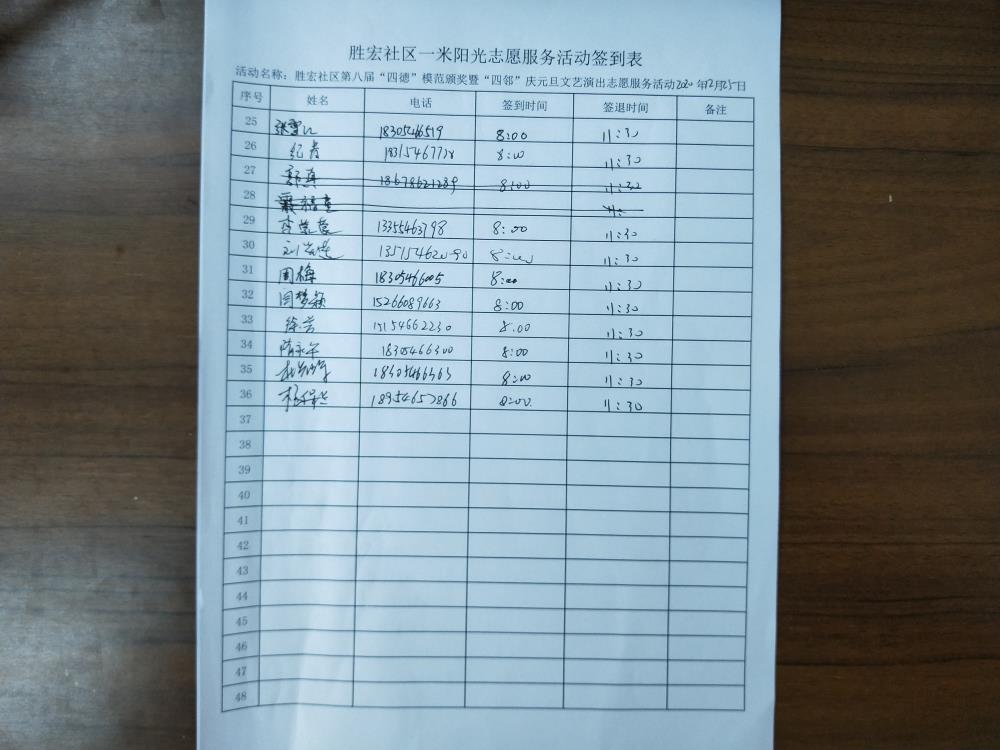 胜宏社区一米阳光志愿服务活动签到表
活动名称：胜宏社区第八届“四德”模范颁奖暨“四邻”庆元旦文艺演出志愿服务活动2020年12月25日
序号 姓名 电话 签到时间 签退时间 备注
25 18305466519 8:00 11:30
26 纪青 18315467728 8:00 11:30
27 18678621239 8:00 11:30
28 11:
29 13355463798 8:00 11:30
30 8:00 11:30
31 周梅 18305466005 8:00 11:30
32 闫梦颖 15266089663 8:00 11:30
33 徐芳 15154662230 8:00 11:30
34 隋永军 18305466300 8:00 11:30
35 18305466363 8:00 11:30
36 18954657866 8:00 11:30
37
38
39
40
41
42
43
44
45
46
47
48